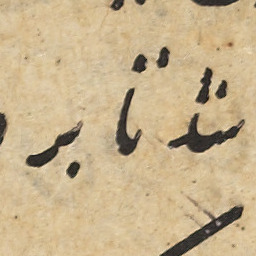 شد تا بر